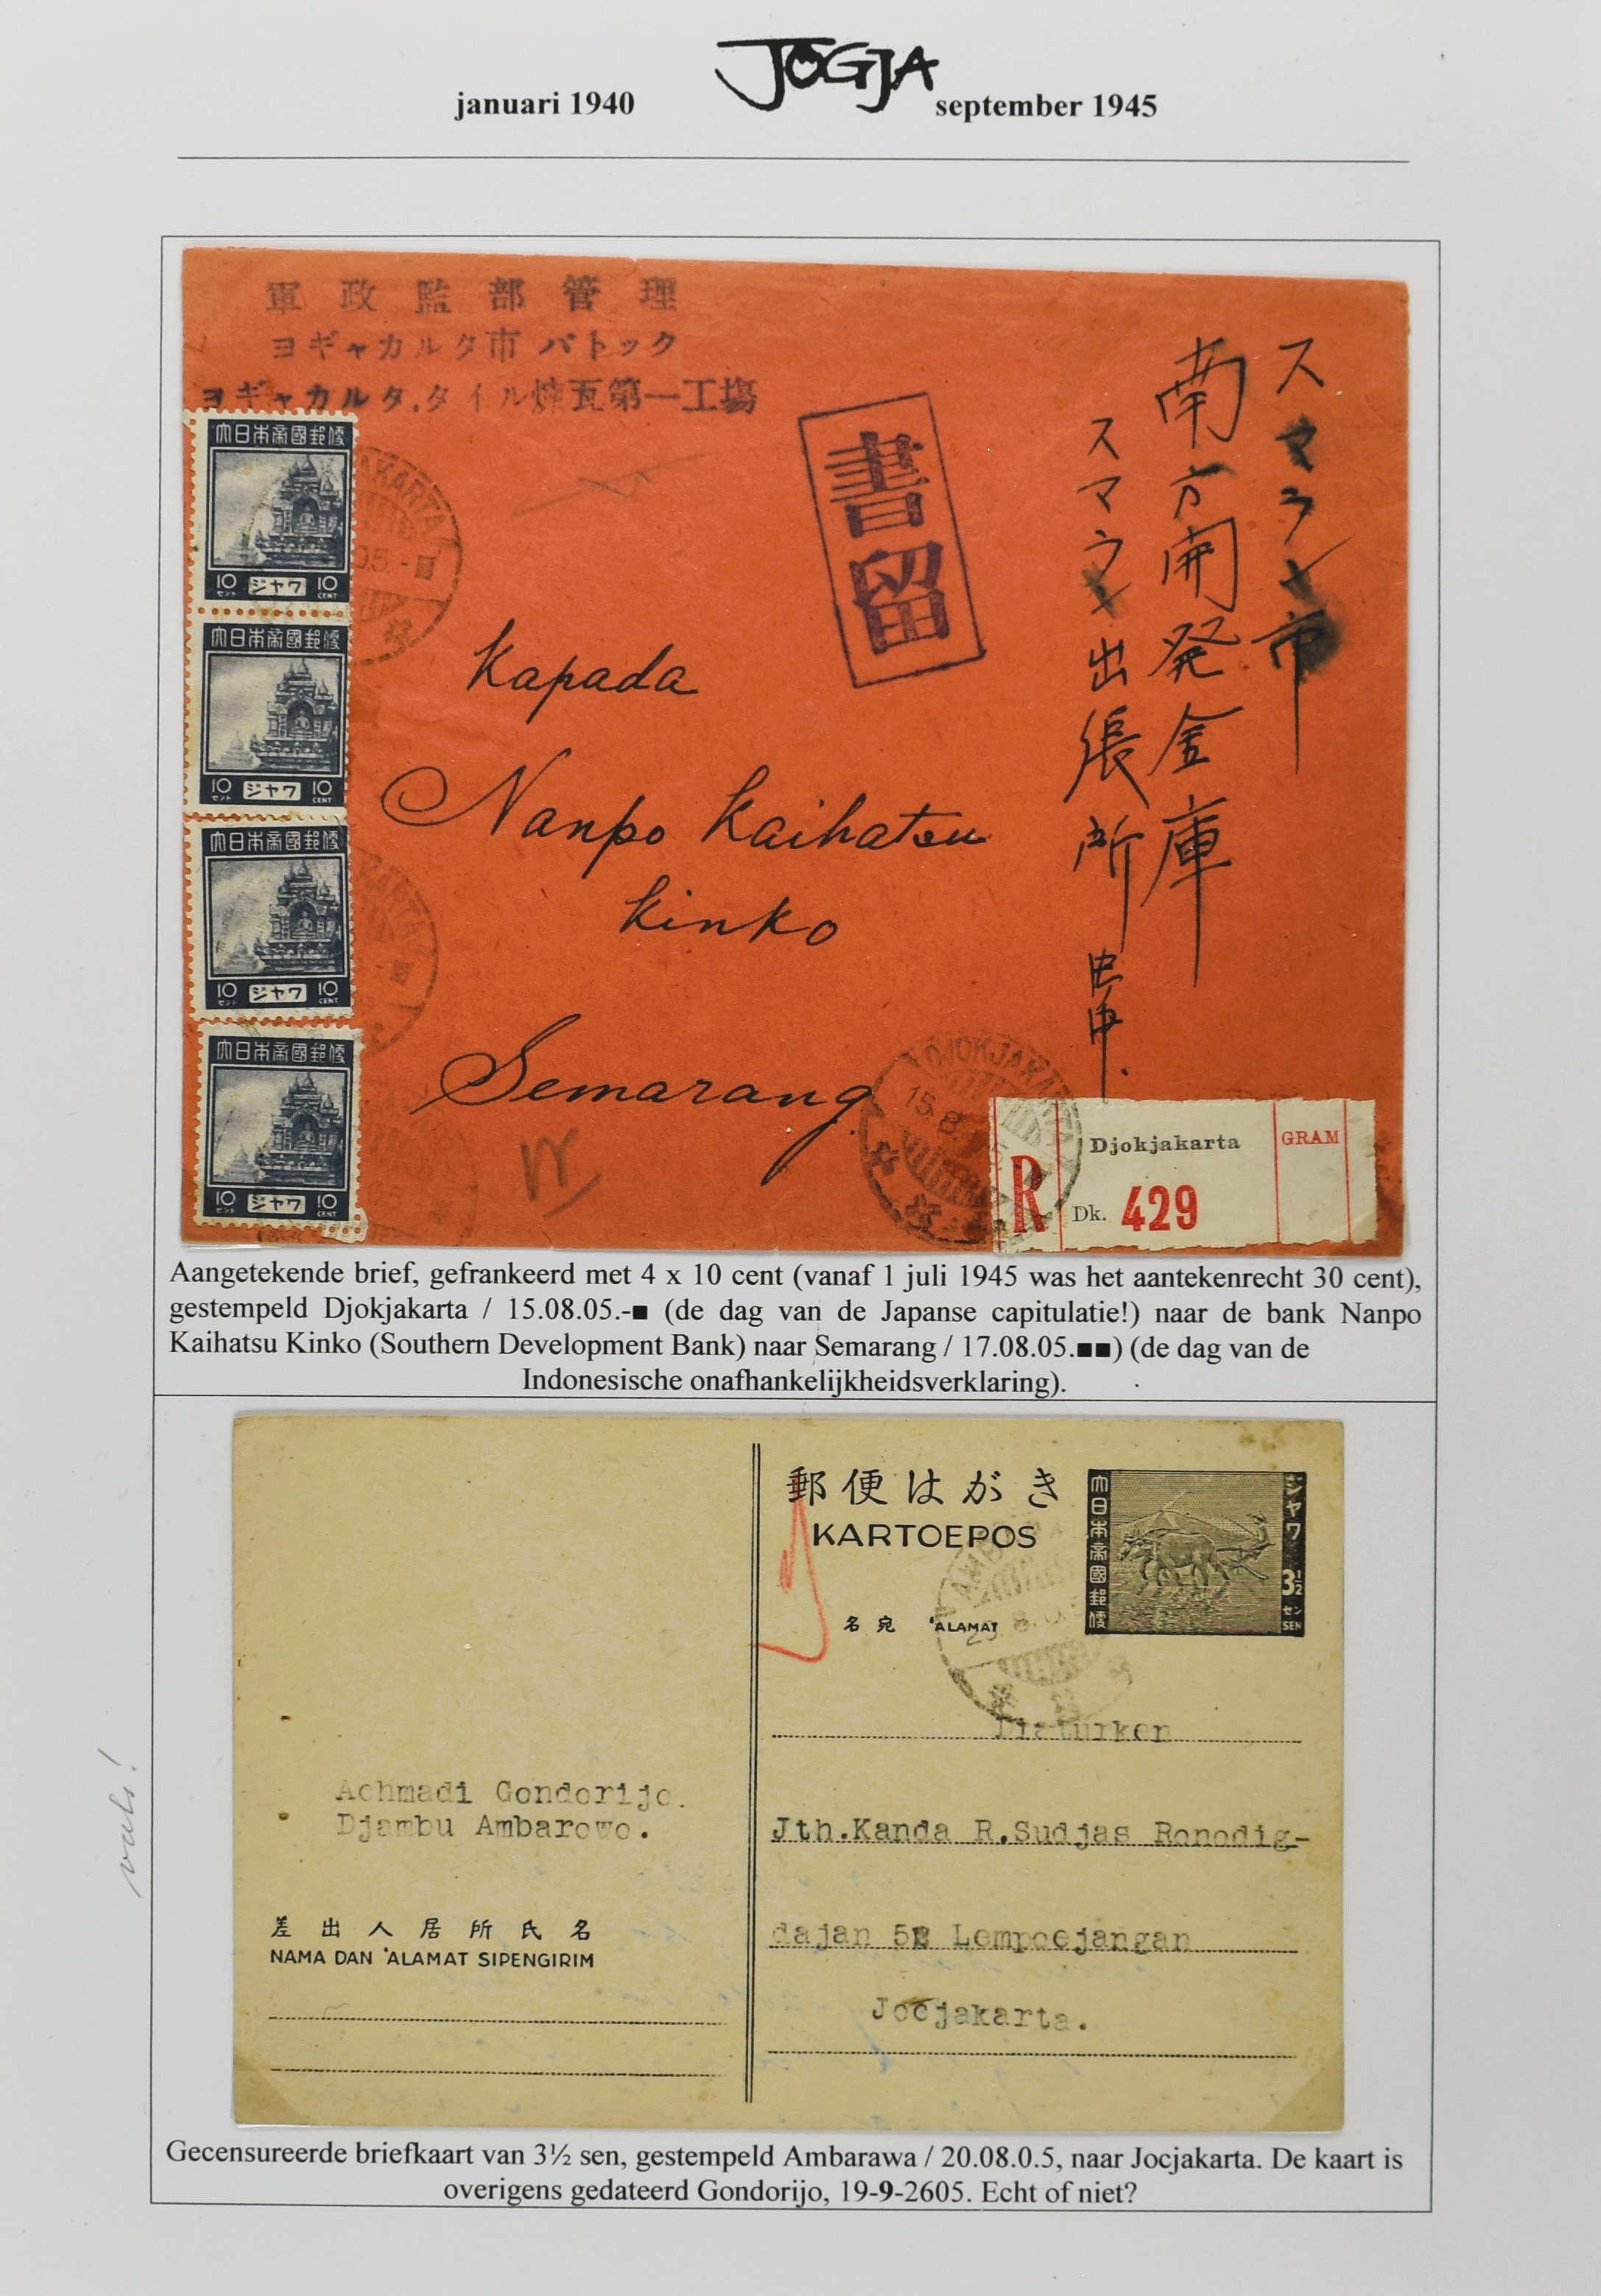 JOGJA
januari 1940
september 1945
軍政監部管理
ヨギャカルタ市 パトック
ヨギャカルタ.タイル煉瓦第一工場
書留
スマラン市
南方開発金庫
スマラン出張所
大日本帝國郵便
10 ジャワ 10
セント CENT
大日本帝國郵便
10 ジャワ 10
セント CENT
大日本帝國郵便
10 ジャワ 10
セント CENT
大日本帝國郵便
10 ジャワ 10
セント CENT
Kapada
Nanpo Kaihatsu
Kinko
Semarang
DJOKJAKARTA
15.8.
R
Djokjakarta
GRAM
Dk. 429
Aangetekende brief, gefrankeerd met 4 x 10 cent (vanaf 1 juli 1945 was het aantekenrecht 30 cent),
gestempeld Djokjakarta / 15.08.05.-■ (de dag van de Japanse capitulatie!) naar de bank Nanpo
Kaihatsu Kinko (Southern Development Bank) naar Semarang / 17.08.05.■■) (de dag van de
Indonesische onafhankelijkheidsverklaring).
郵便はがき
KARTOEPOS
大日本帝國郵便
ジャワ
3½
セン
SEN
名宛 'ALAMAT
Achmadi Gondorijo.
Djambu Ambarowo.
Jth.Kanda R.Sudjas Ronodig-
dajan 52 Lempoejangan
Jocjakarta.
差出人居所氏名
NAMA DAN 'ALAMAT SIPENGIRIM
vals!
Gecensureerde briefkaart van 3½ sen, gestempeld Ambarawa / 20.08.0.5, naar Jocjakarta. De kaart is
overigens gedateerd Gondorijo, 19-9-2605. Echt of niet?